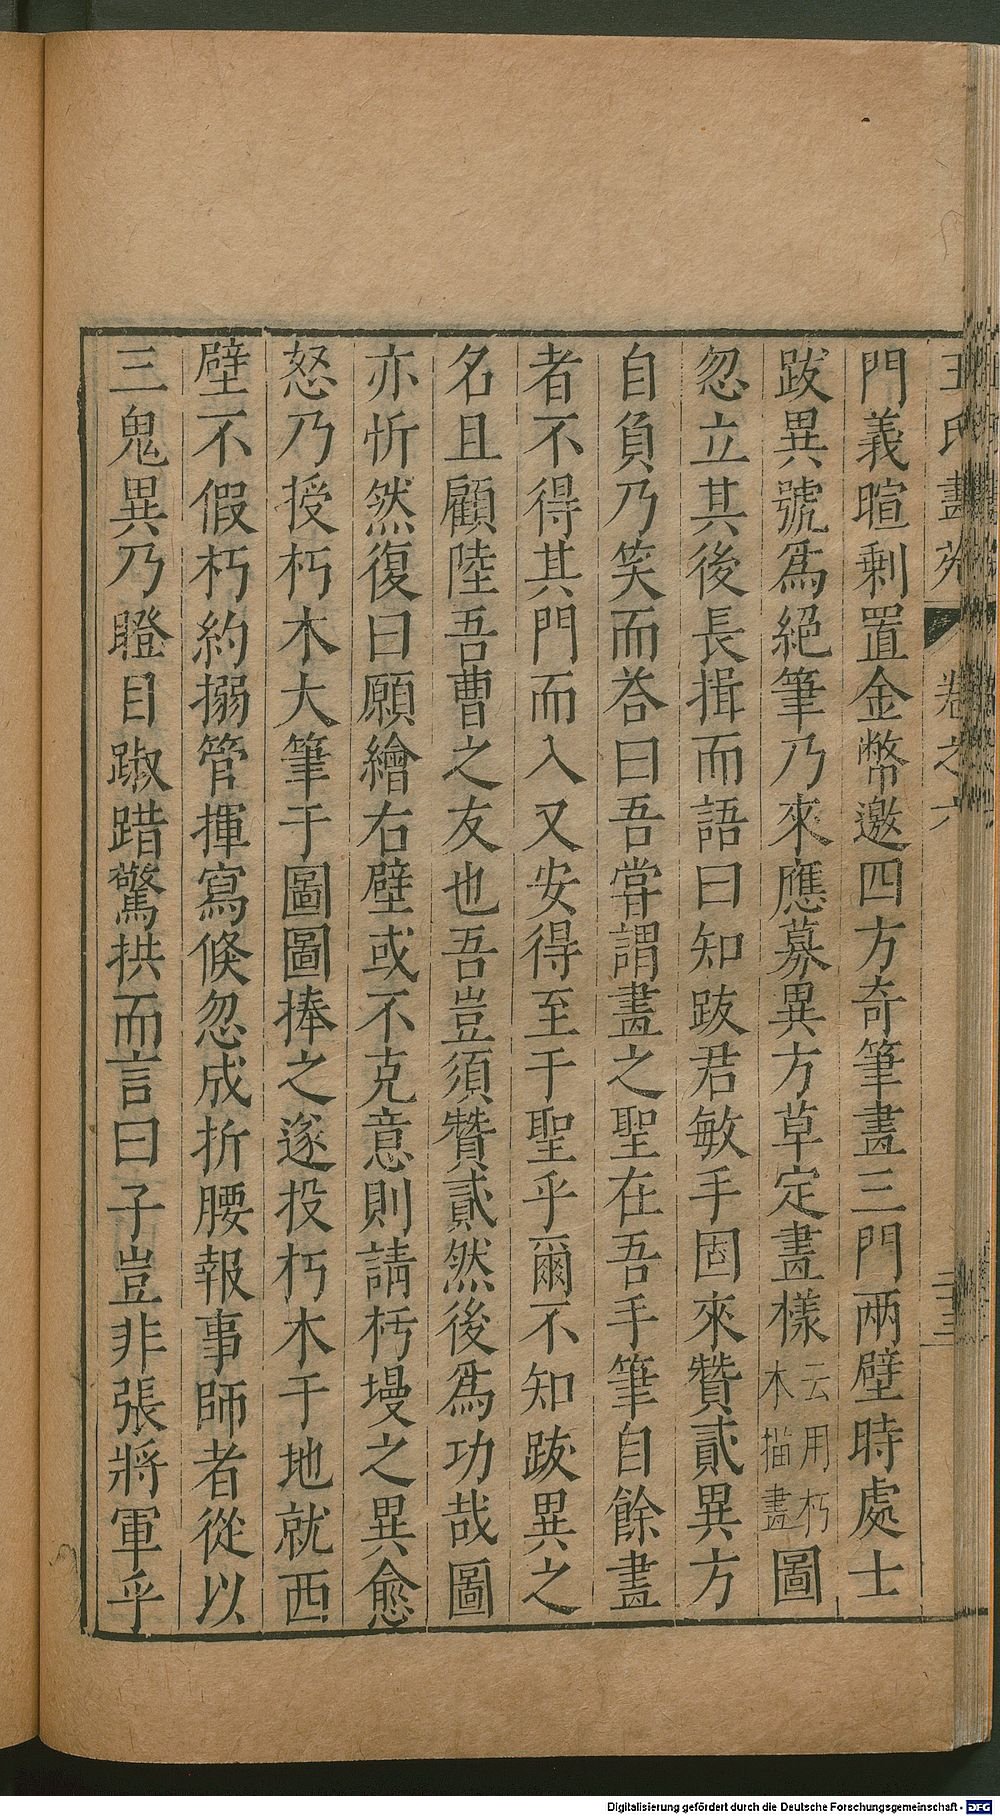 王氏畫苑 卷之六 二十三
門義暄剩置金幣邀四方奇筆畫三門兩壁時處士
跋異號爲絕筆乃來應募異方草定畫樣云用朽木描畫圖
忽立其後長揖而語曰知跋君敏手固來贊貳異方
自負乃笑而荅曰吾嘗謂畫之聖在吾手筆自餘畫
者不得其門而入又安得至于聖乎爾不知跋異之
名且顧陸吾曹之友也吾豈須贊貳然後爲功哉圖
亦忻然復曰願繪右壁或不克意則請杇墁之異愈
怒乃授朽木大筆于圖圖捧之遂投朽木于地就西
壁不假朽約搦管揮寫倐忽成折腰報事師者從以
三鬼異乃瞪目踧踖驚拱而言曰子豈非張將軍乎
Digitalisierung gefördert durch die Deutsche Forschungsgemeinschaft - DFG